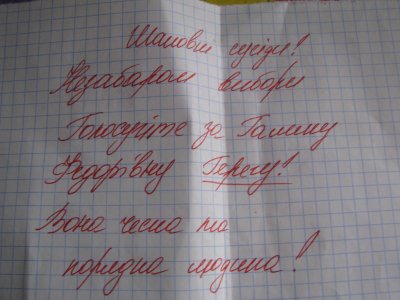 Шановні сусіди!
Незабаром вибори
Голосуйте за Галину
Федорівну Герегу!
Вона чесна та
порядна людина!